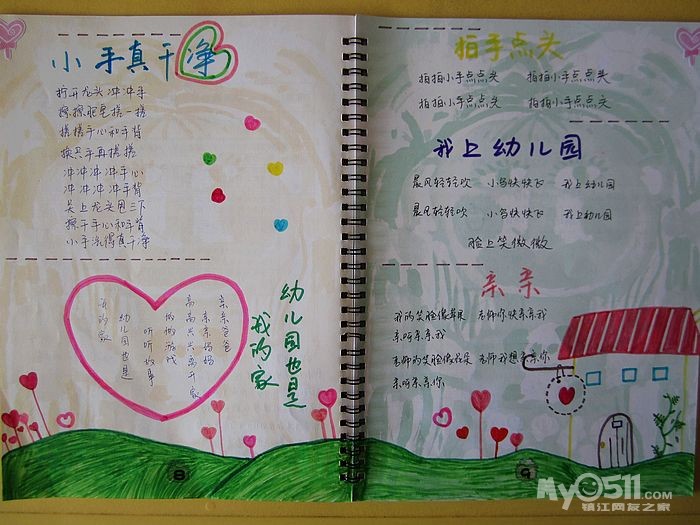 小手真干净
打开龙头冲冲手
擦擦肥皂搓一搓
搓搓手心和手背
换只手再搓搓
冲冲冲冲手心
冲冲冲冲手背
关上龙头甩三下
擦干手心和手背
小手洗得真干净
幼儿园也是
我的家
亲亲爸爸
亲亲妈妈
高高兴兴离开家
做做游戏
听听故事
幼儿园也是
我的家
8
拍手点头
拍拍小手点点头 拍拍小手点点头
拍拍小手点点头 拍拍小手点点头
我上幼儿园
晨风轻轻吹 小鸟快快飞 我上幼儿园
晨风轻轻吹 小鸟快快飞 我上幼儿园
脸上笑微微
亲亲
我的笑脸像苹果 老师你快亲亲我
亲呀亲亲我
老师的笑脸像花朵 老师我想亲亲你
亲呀亲亲你
9
MyO511.com
镇江网友之家